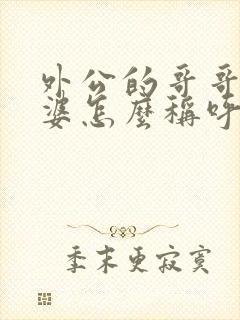 外公的哥哥
婆怎麼稱呼
季末更寂寞